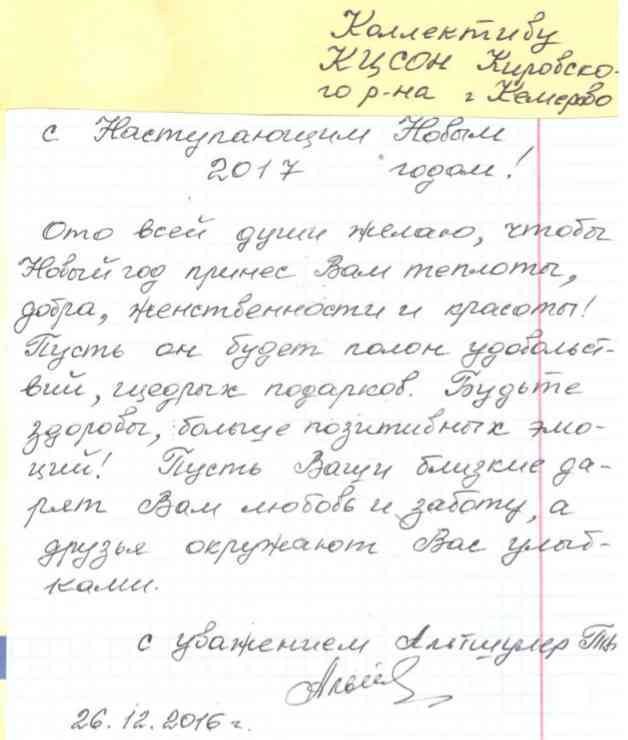 Коллективу
КЦСОН Кировско-
го р-на г Кемерово
с Наступающим Новым
2017 годом!
Ото всей души желаю, чтобы
Новый год принес Вам теплоты,
добра, женственности и красоты!
Пусть он будет полон удовольст-
вий, щедрых подарков. Будьте
здоровы, больше позитивных эмо-
ций! Пусть Ваши близкие да-
рят Вам любовь и заботу, а
друзья окружают Вас улыб-
ками.
с уважением Альтшулер
26.12.2016 г.